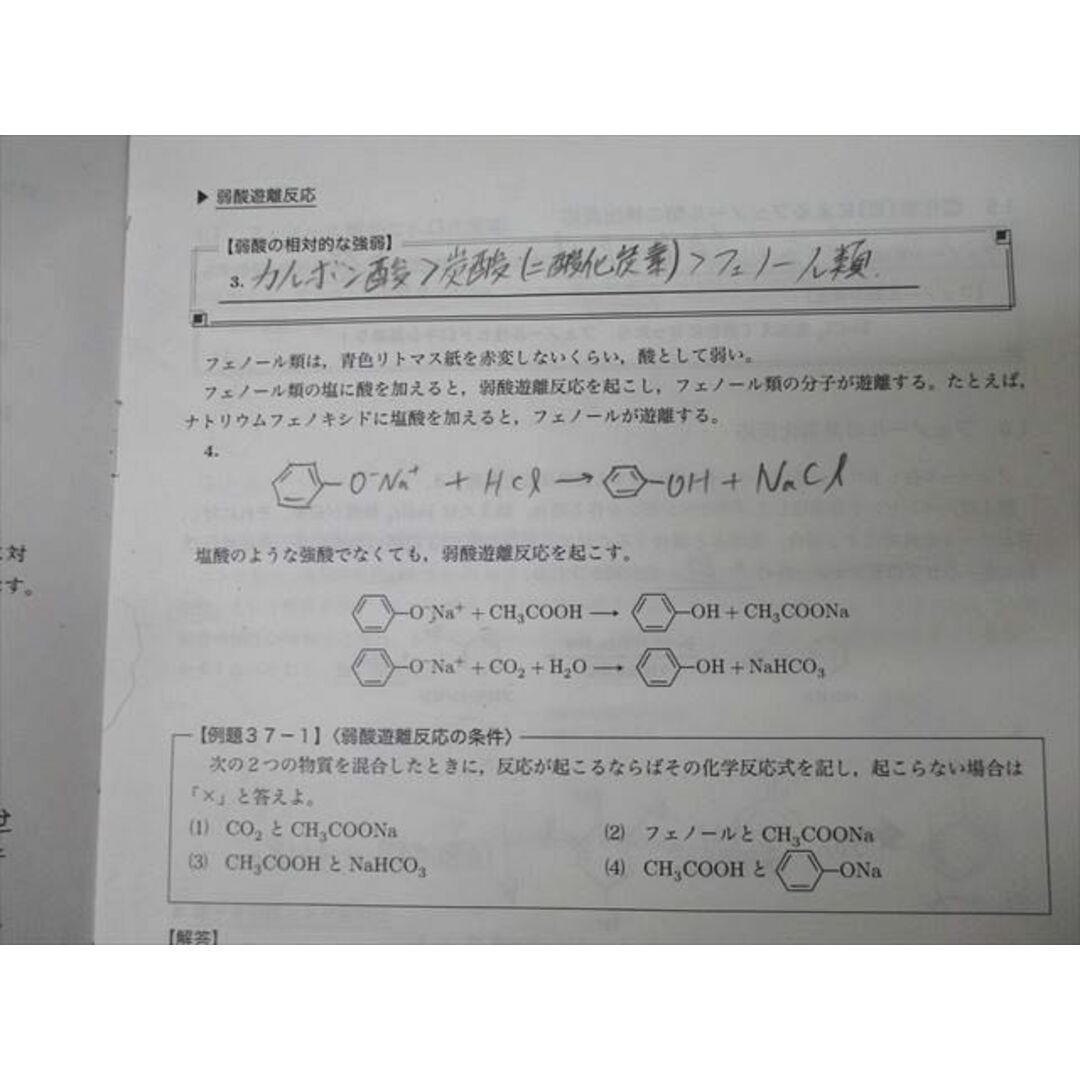 ▶ 弱酸遊離反応
【弱酸の相対的な強弱】
3. カルボン酸>炭酸(二酸化炭素)>フェノール類.
フェノール類は,青色リトマス紙を赤変しないくらい,酸として弱い。
フェノール類の塩に酸を加えると,弱酸遊離反応を起こし,フェノール類の分子が遊離する。たとえば,
ナトリウムフェノキシドに塩酸を加えると,フェノールが遊離する。
4.
-O⁻Na⁺ + HCl → -OH + NaCl
塩酸のような強酸でなくても,弱酸遊離反応を起こす。
-O⁻Na⁺ + CH₃COOH → -OH + CH₃COONa
-O⁻Na⁺ + CO₂ + H₂O → -OH + NaHCO₃
【例題37-1】〈弱酸遊離反応の条件〉
次の2つの物質を混合したときに,反応が起こるならばその化学反応式を記し,起こらない場合は
「×」と答えよ。
(1) CO₂ と CH₃COONa (2) フェノールと CH₃COONa
(3) CH₃COOH と NaHCO₃ (4) CH₃COOH と -ONa
【解答】
対
す。